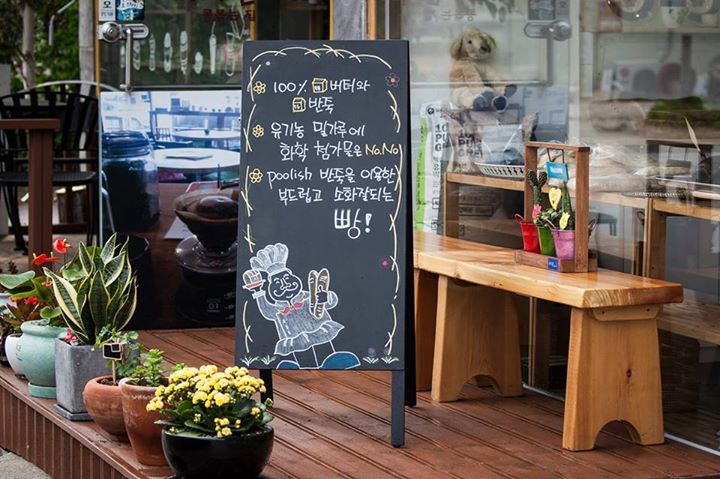 100% 버터와
반죽
유기농 밀가루에
화학 첨가물은 No.No
poolish 반죽을 이용한
부드럽고 소화잘되는
빵!